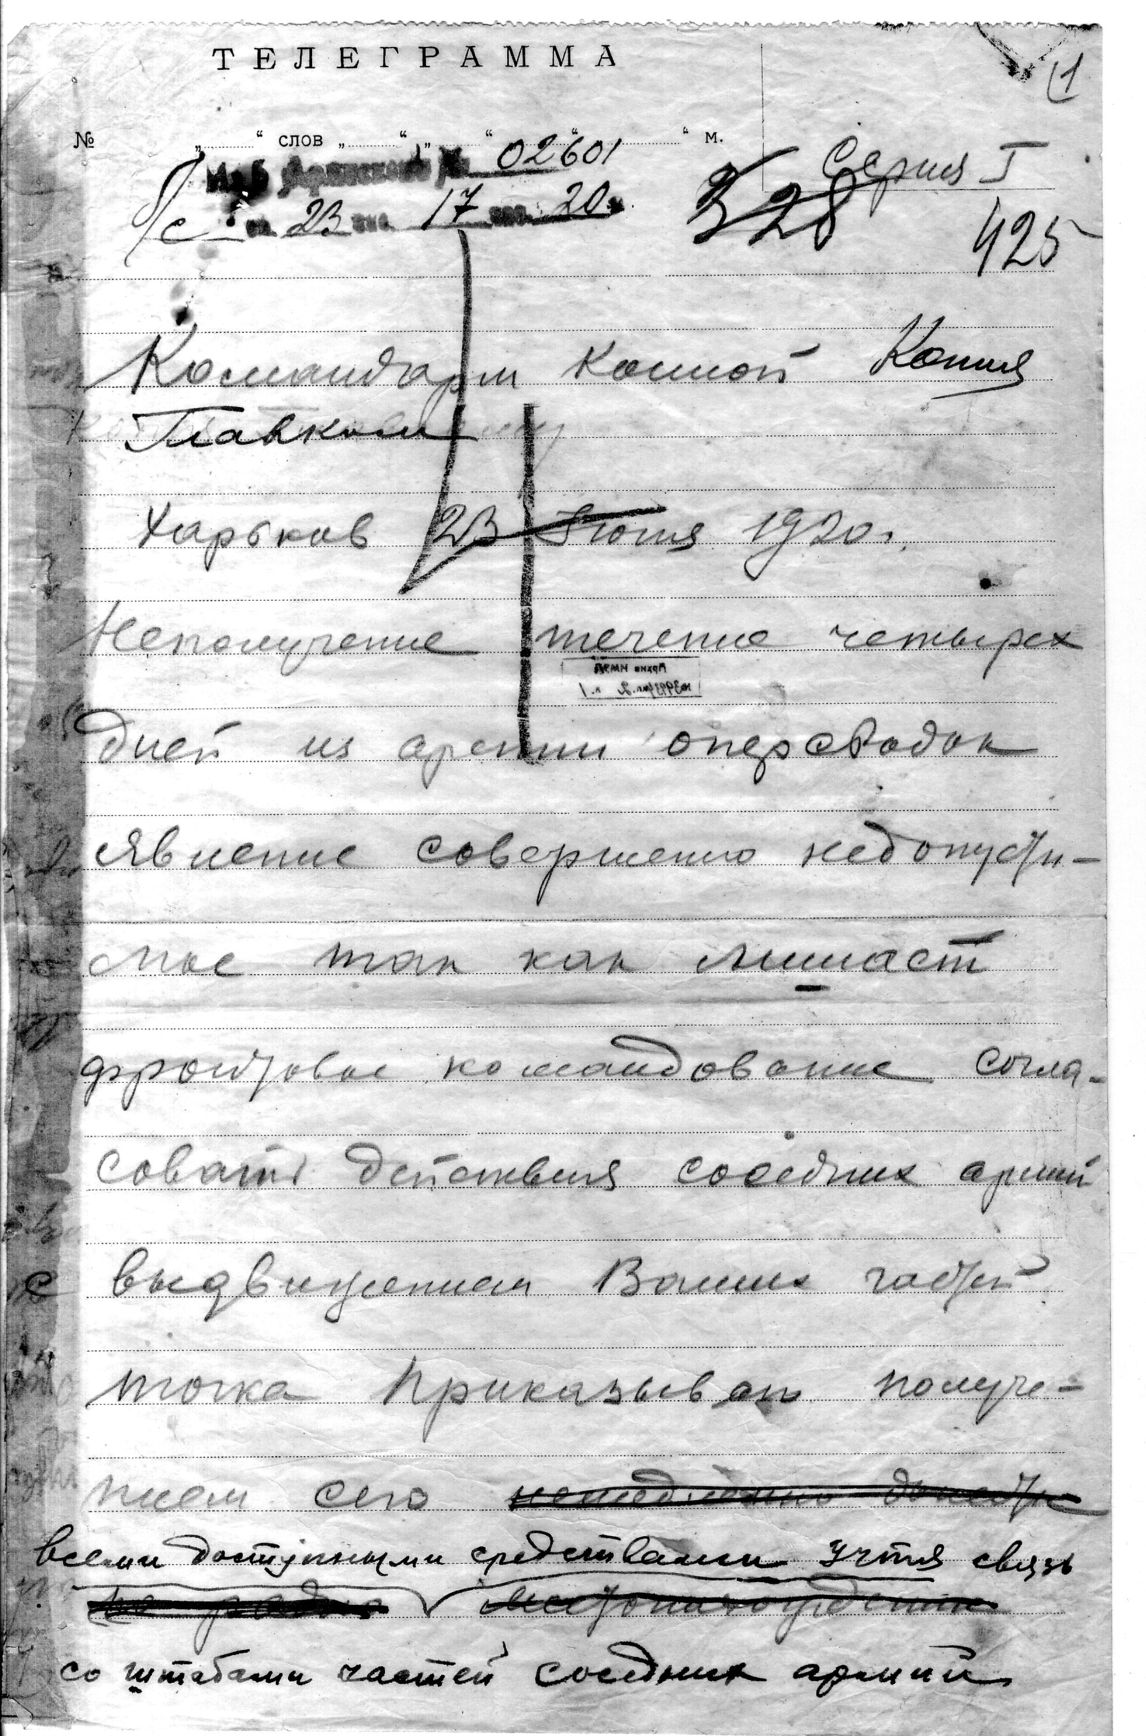 ТЕЛЕГРАММА
1
№ „ “ слов „ “ „ “ “ м.
№ 02601
Серия I
б/с 23 17 20
328
425
Командарм Конной Копия
Главком
Харьков 23 Июня 1920г.
Неполучение течение четырех
дней из армии оперсводок
явление совершенно недопусти-
мое так как лишает
фронтовое командование согла-
совать действия соседних армий
с выдвижением Ваших частей
точка Приказываю получе-
нием сего немедленно донести
всеми доступными средствами учтя связь
по радио местонахождение
со штабами частей соседних армий